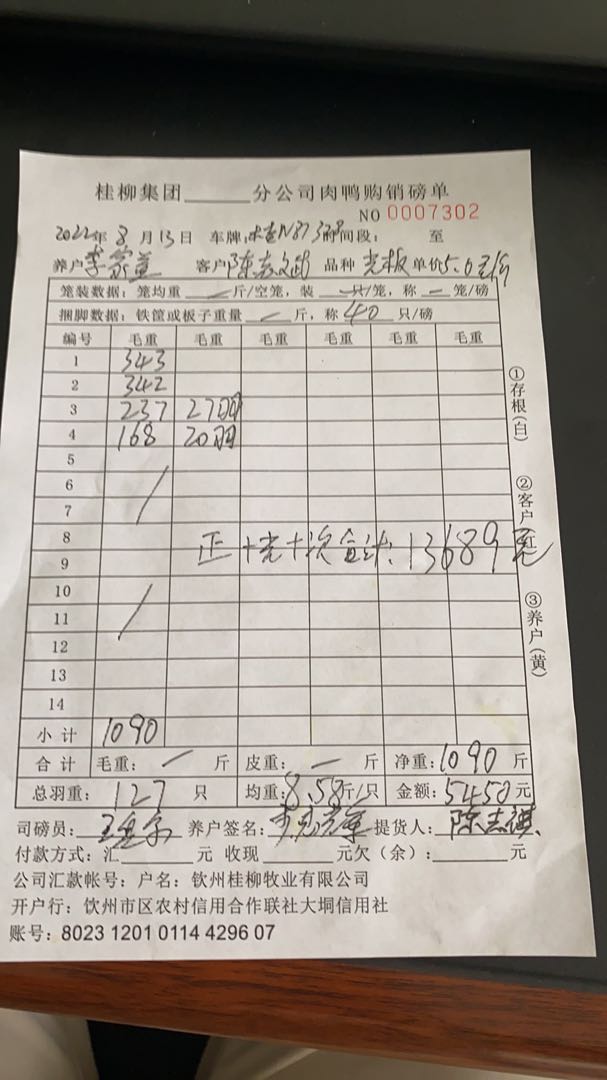 桂柳集团______分公司肉鸭购销磅单
NO 0007302
2022年8月13日 车牌: 时间段: 至
养户 客户 品种 光板 单价5.0元/斤
笼装数据：笼均重 — 斤/空笼，装 — 只/笼，称 — 笼/磅
捆脚数据：铁筐或板子重量 — 斤，称 40 只/磅
编号 毛重 毛重 毛重 毛重 毛重 毛重
1 343
2 342
3 237 27羽
4 168 20羽
5
6
7
8
9
正+光+次合计:13689元
10
11
12
13
14
小计 1090
合计 毛重: / 斤 皮重: — 斤 净重:1090 斤
总羽重: 127 只 均重:8.58斤/只 金额:5450元
司磅员: 养户签名: 提货人:陈志祺
付款方式:汇______元 收现______元欠(余):______元
公司汇款帐号：户名：钦州桂柳牧业有限公司
开户行：钦州市区农村信用合作联社大垌信用社
账号: 8023 1201 0114 4296 07
①存根(白)
②客户(红)
③养户(黄)